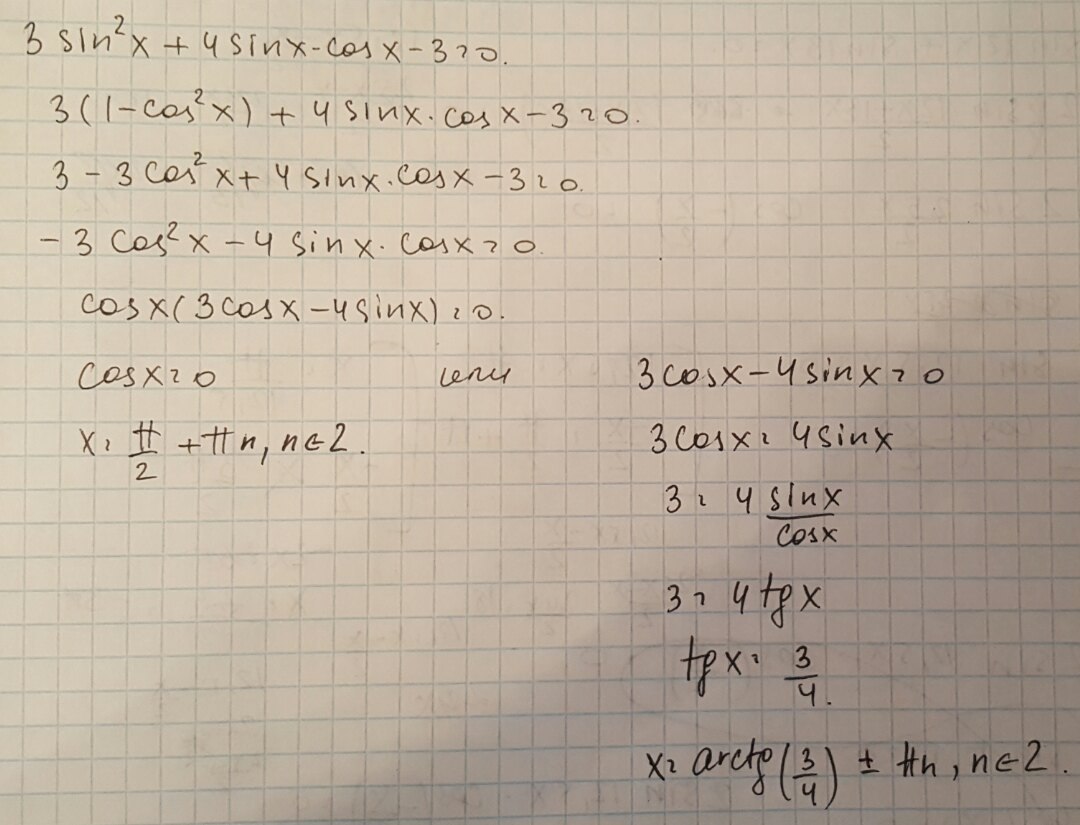 3 sin²x + 4 sinx·cosx - 3 = 0.
3(1-cos²x) + 4 sinx·cosx - 3 = 0.
3 - 3cos²x + 4 sinx·cosx - 3 = 0.
- 3 cos²x - 4 sinx·cosx = 0.
cosx(3cosx - 4sinx) = 0.
cosx = 0 или 3cosx - 4sinx = 0
x = π/2 + πn, n∈Z. 3cosx = 4sinx
3 = 4 sinx/cosx
3 = 4 tgx
tgx = 3/4.
x = arctg(3/4) ± πn, n∈Z.